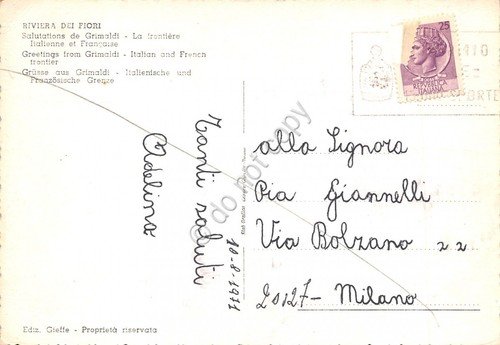 RIVIERA DEI FIORI
Salutations de Grimaldi - La frontière
Italienne et Française
Greetings from Grimaldi - Italian and French
frontier
Grüsse aus Grimaldi - Italienische und
Französische Grenze
Tanti saluti
Adelina
10-8-1971
alla Signora
Pia Giannelli
Via Bolzano 22
20127 - Milano
25
do not copy
Ediz. Gieffe - Proprietà riservata